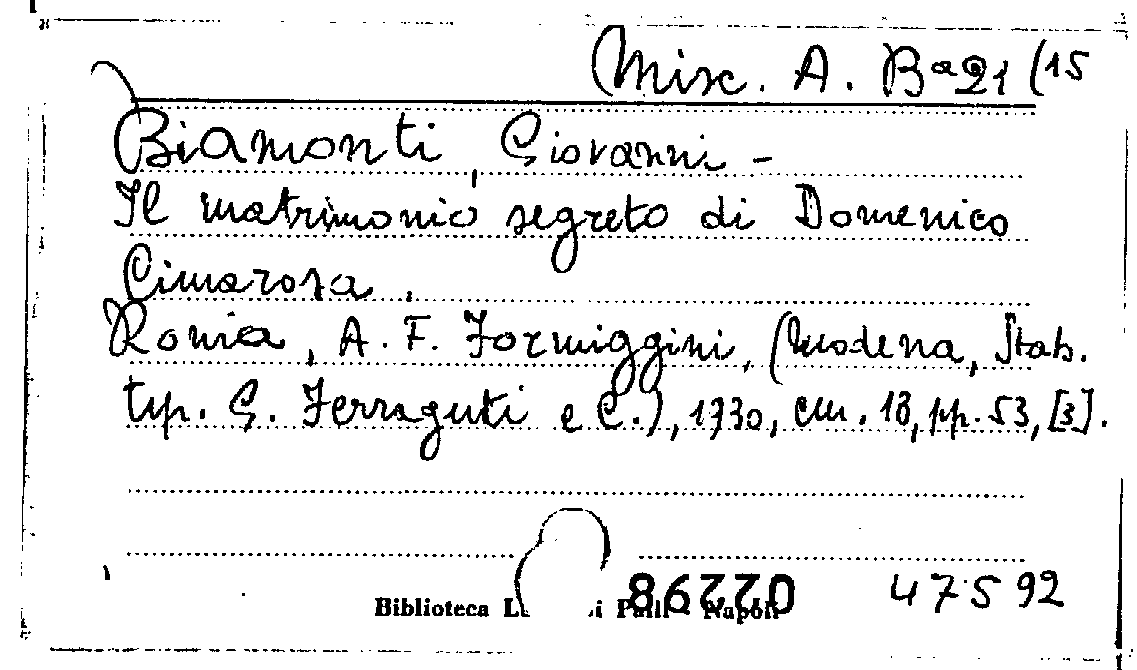 Misc. A. Ba 21 (15
Biamonti, Giovanni -
Il matrimonio segreto di Domenico
Cimarosa.
Roma, A. F. Formiggini, (Modena, Stab.
tip. G. Ferraguti e C.), 1930, cm. 18, pp. 53, [3].
47592
Biblioteca Napoli